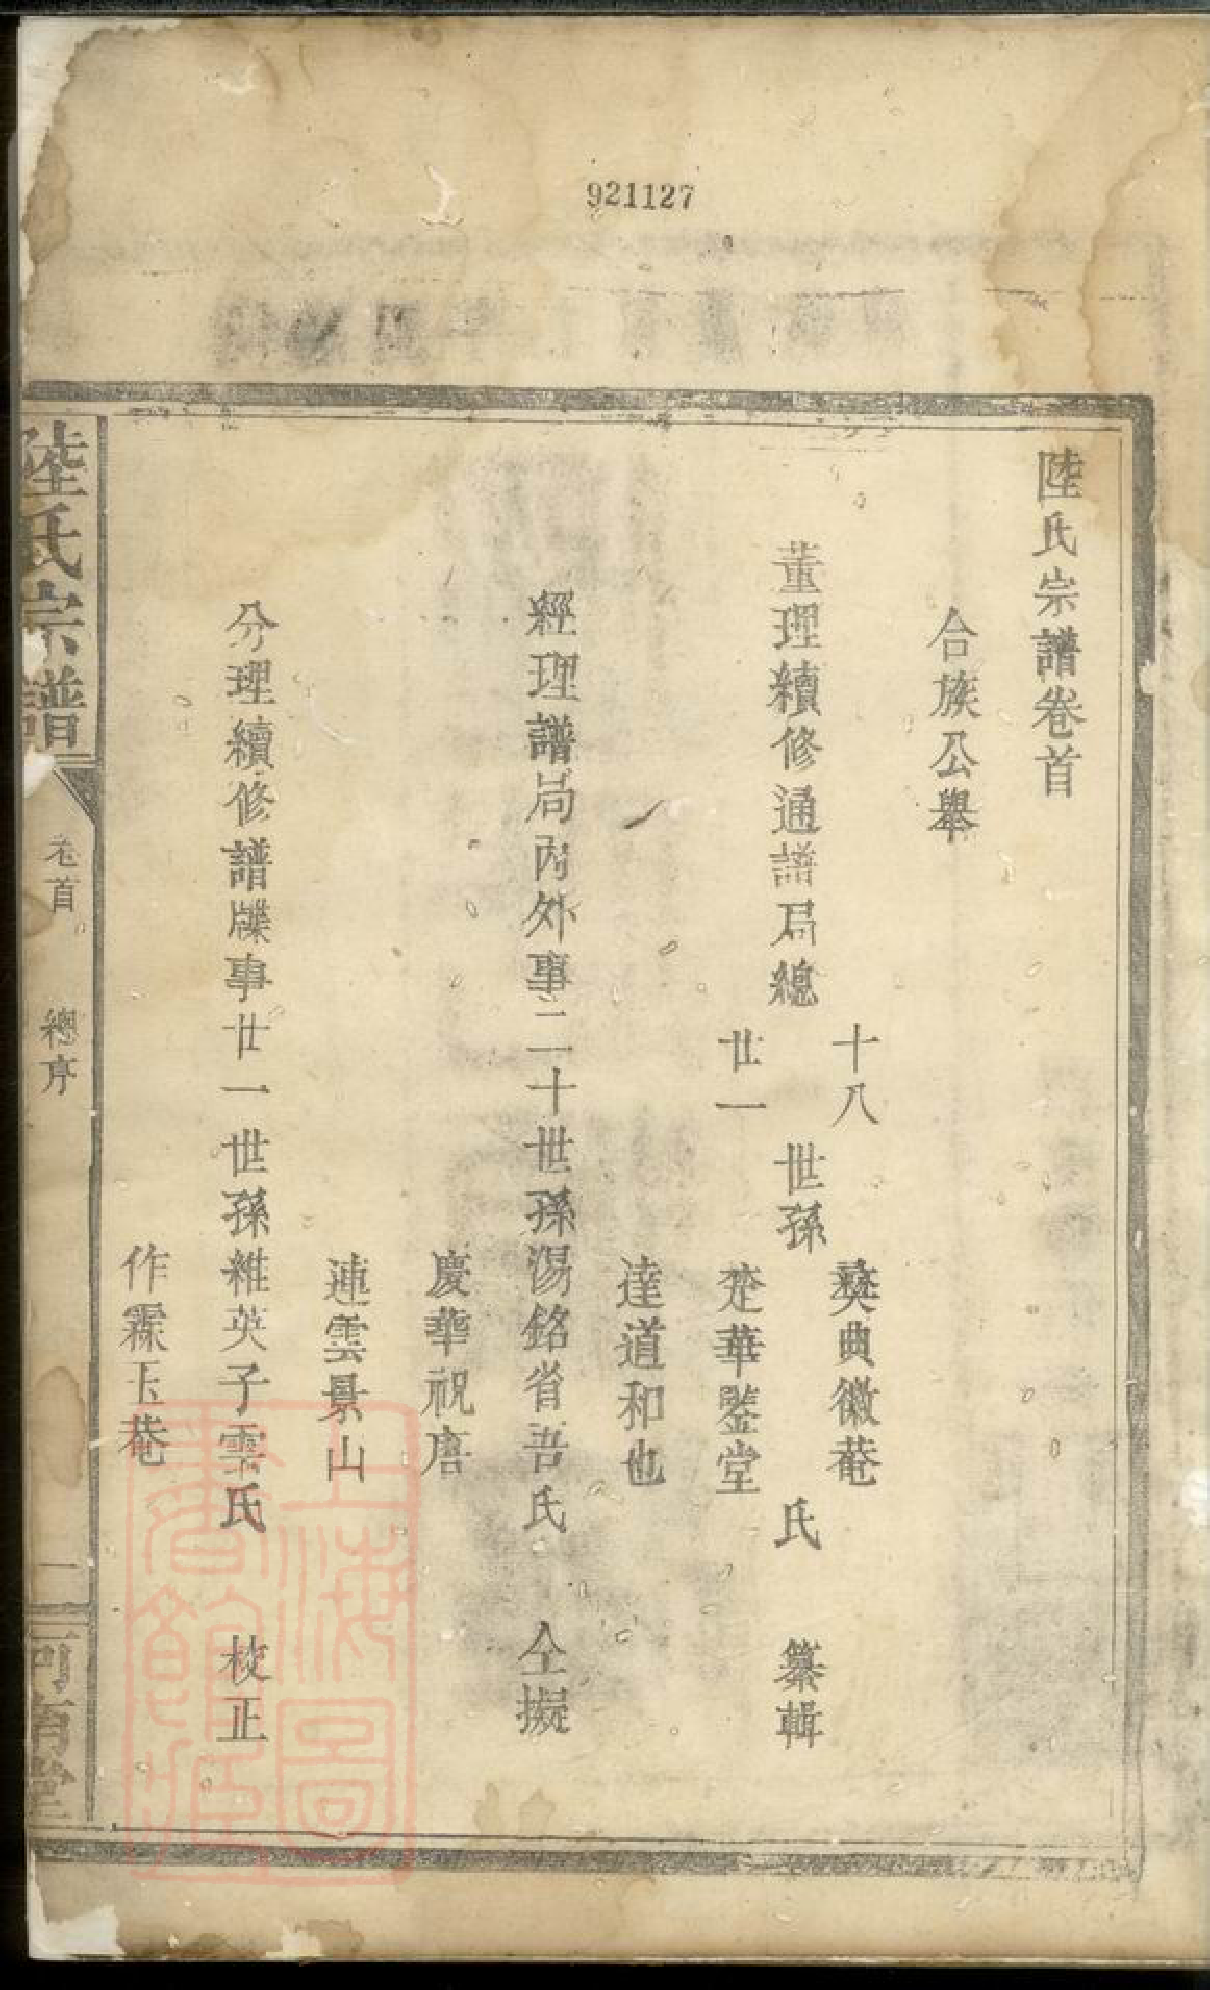 921127
陸氏宗譜卷首
合族公舉
董理續修通譜局總
十八
廿一
世孫
奬典徽菴
楚華鑒堂
氏
纂輯
達道和也
經理譜局內外事二十世孫湯銘省吾氏
仝擬
慶華祝唐
連雲景山
分理續修譜牒事廿一世孫維英子雲氏
校正
作霖玉菴
陸氏宗譜
卷首
總序
一
可有堂
上海圖書館藏